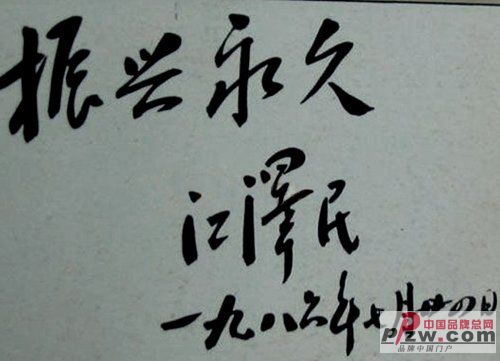 振兴永久
江泽民
一九八六年七月廿四日
中国品牌总网
Ppzw.com
品牌中国门户